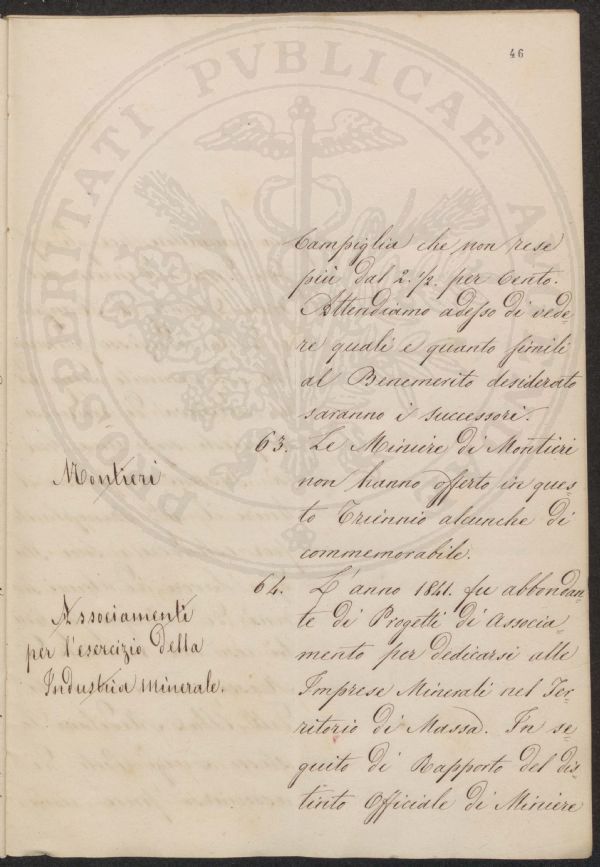 46
PROSPERITATI PVBLICAE
Campiglia che non rese
più dal 2. 1/2. per Cento.
Attendiamo adesso di vede=
re quali e quanto simili
al Benemerito desiderato
saranno i successori.
Montieri
63. Le Miniere di Montieri
non hanno offerto in ques=
to Triennio alcunche di
commemorabile.
Associamenti
per l'esercizio della
Industria Minerale.
64. L'anno 1841. fu abbondan=
te di Progetti di Associa=
mento per dedicarsi alle
Imprese Minerali nel Ter=
ritorio di Massa. In se=
guito di Rapporto del dis=
tinto Officiale di Miniere